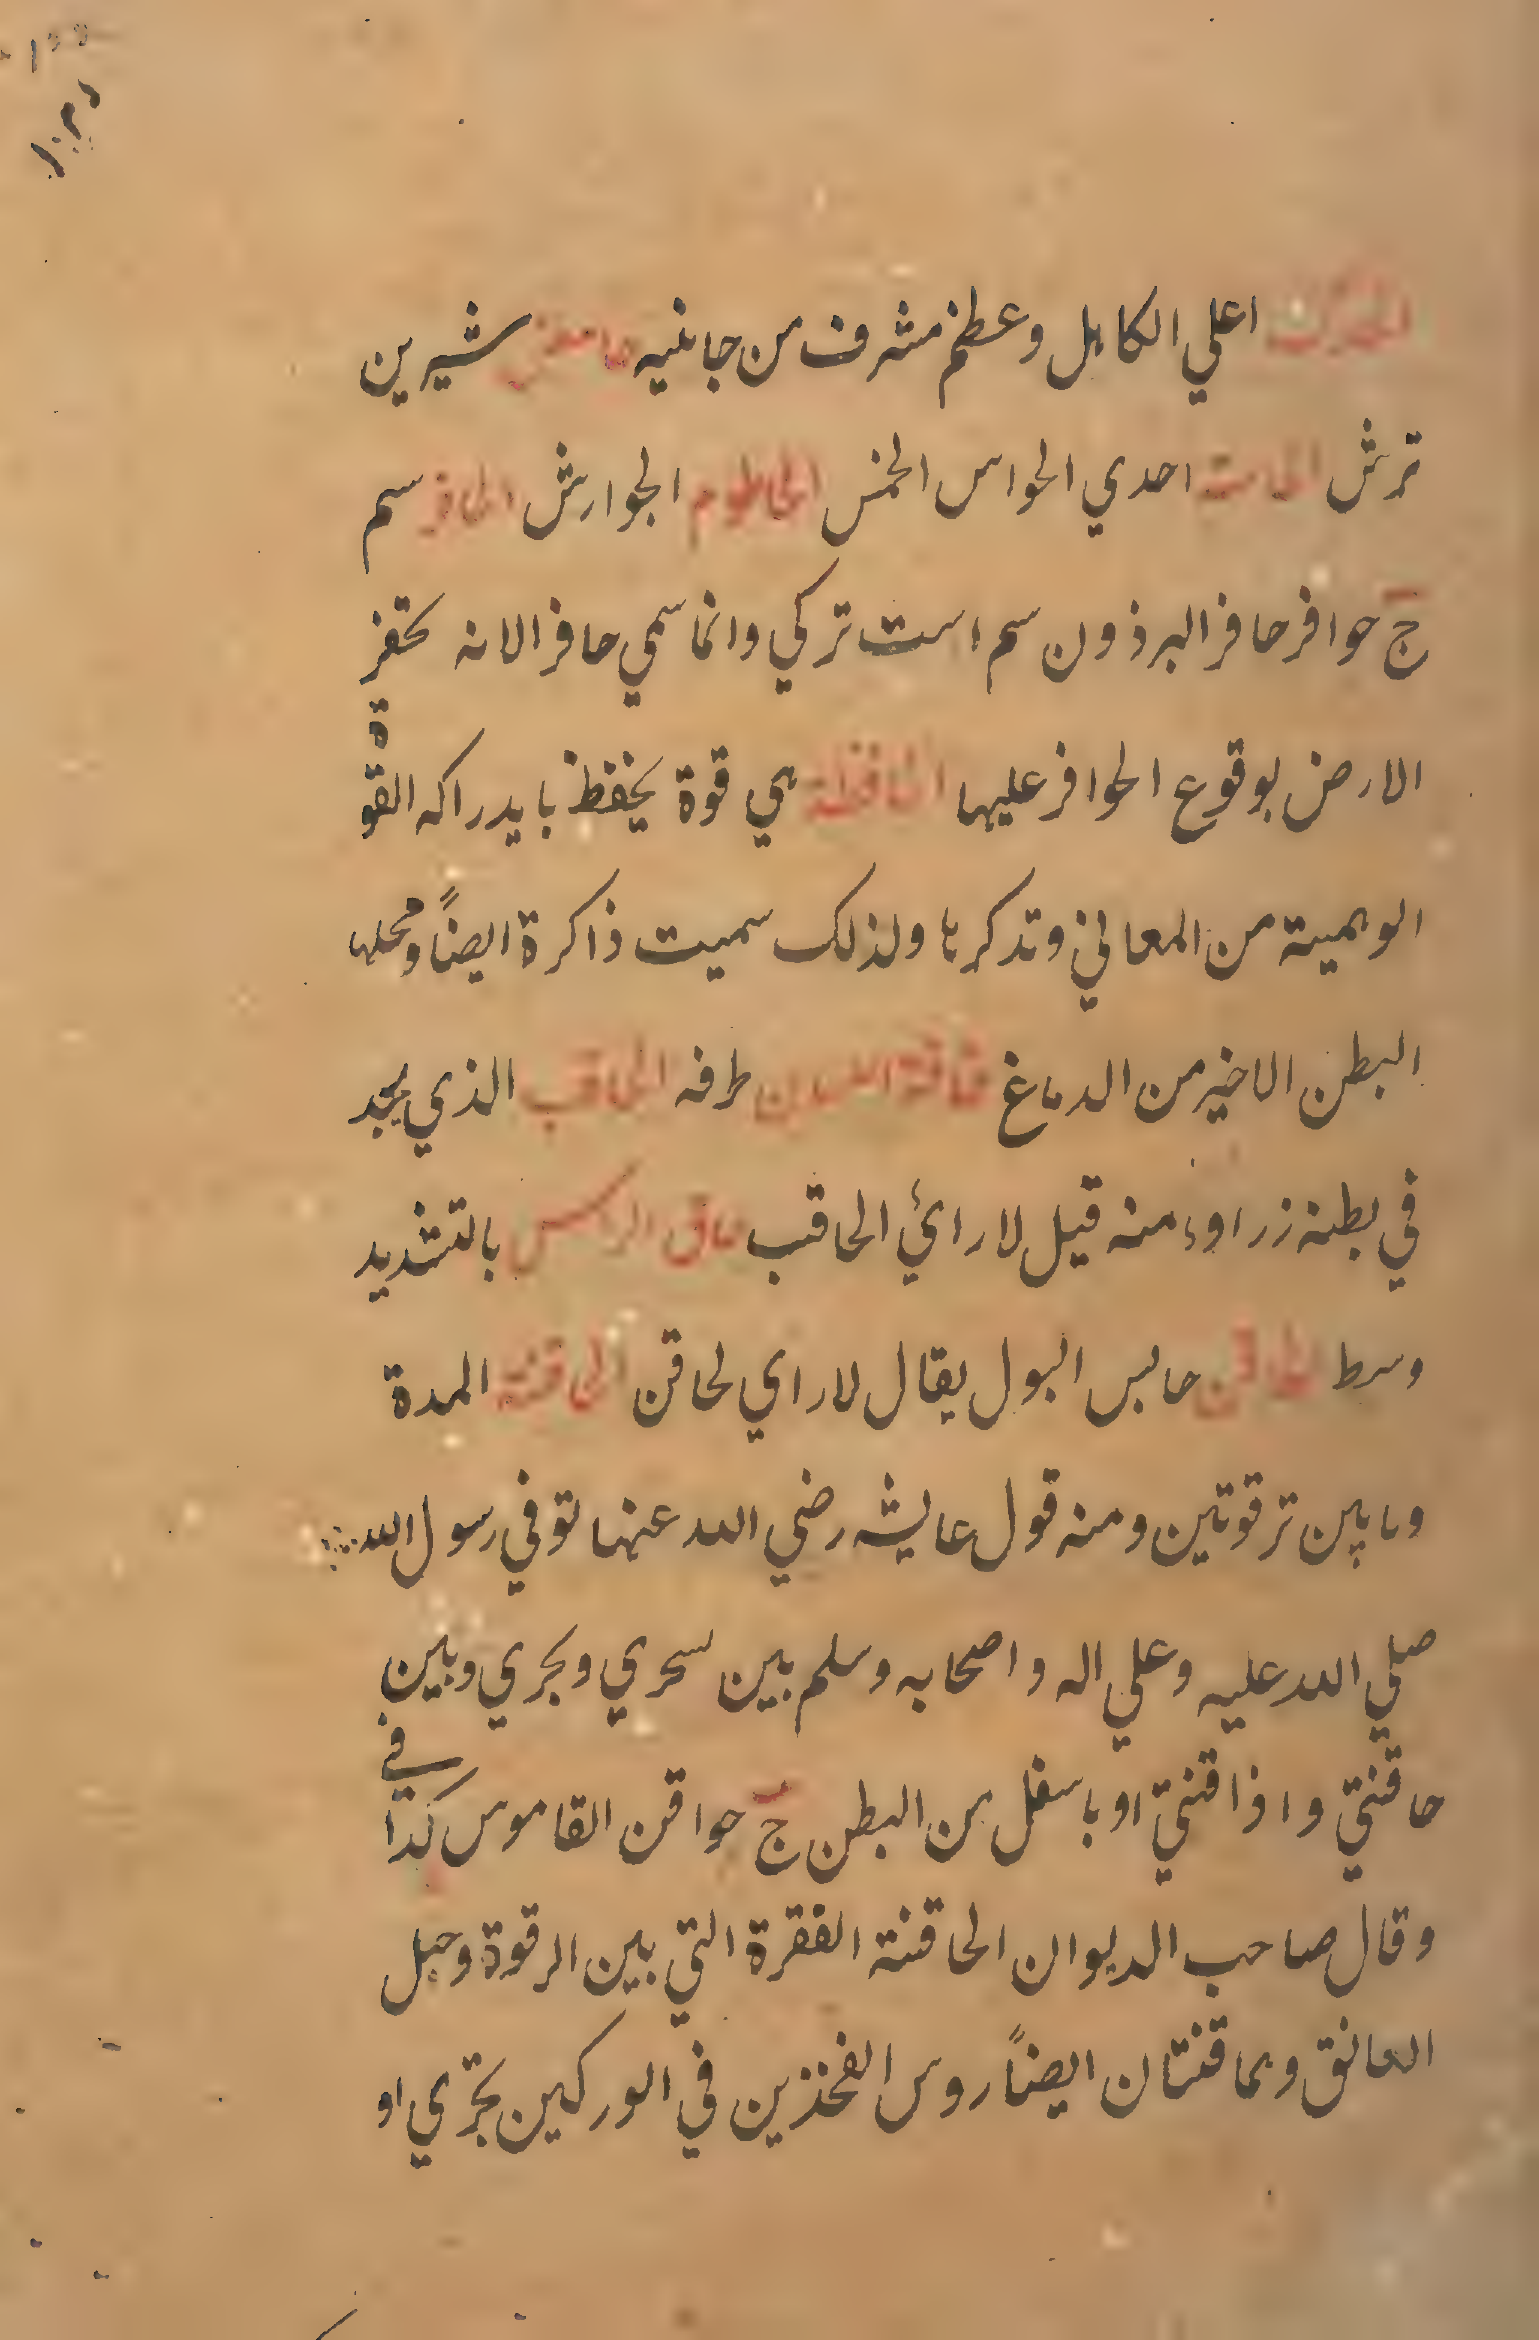 الحارك اعلي الكاهل وعظم مشرف من جانبيه حامض شيرين
ترش الحاسة احدي الحواس الخمس الحاطوم الجوارش الحافر سم
ج حوافر حافر البرذون سم است تركي وانما سمي حافر الانه تحفر
الارض بوقوع الحوافر عليها الحافظة هي قوة يحفظ بايدراكه القوة
الوهمية من المعاني وتذكرها ولذلك سميت ذاكرة ايضاً ومحلها
البطن الاخير من الدماغ طرفه الحاقب الذي يجد
في بطنه زراو، منه قيل لا رائي الحاقب حاق الراس بالتشديد
وسط الحاقن حابس البول يقال لا راي لحاقن الحاقنة المدة
وما بين ترقوتين ومنه قول عايشه رضي الله عنها توفي رسول الله
صلي الله عليه وعلي اله واصحابه وسلم بين سحري ونحري وبين
حاقنتي واذاقنتي او باسفل من البطن ج حواقن القاموس كذا في
وقال صاحب الديوان الحاقنة الفقرة التي بين الرقوة وحبل
العانق وهماقنتان ايضاً روس الفخذين في الوركين او